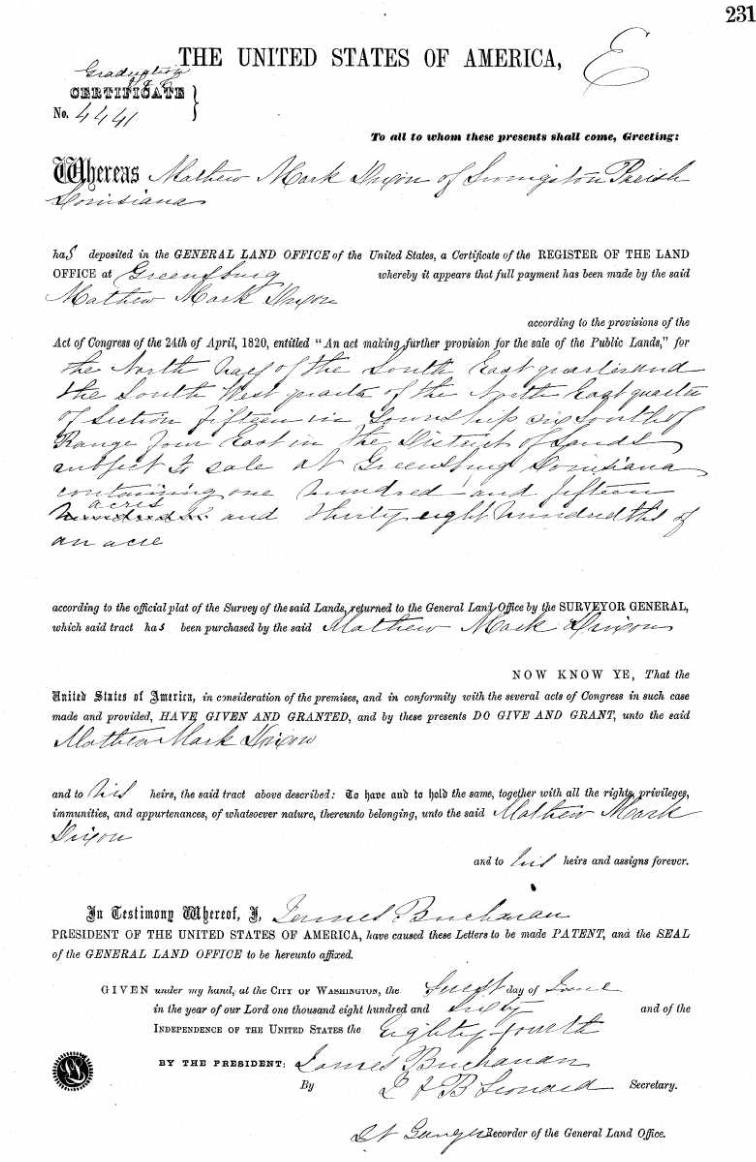 231
THE UNITED STATES OF AMERICA,
E
Graduation
CERTIFICATE
No. 4441 }
To all to whom these presents shall come, Greeting:
Whereas Mathew Mark Dixon of Livingston Parish
Louisiana
has deposited in the GENERAL LAND OFFICE of the United States, a Certificate of the REGISTER OF THE LAND
OFFICE at Greensburg whereby it appears that full payment has been made by the said
Mathew Mark Dixon
according to the provisions of the
Act of Congress of the 24th of April, 1820, entitled "An act making further provision for the sale of the Public Lands," for
the North half of the South East quarter and
the South West quarter of the North East quarter
of Section fifteen in Township six South of
Range four East in the District of Lands
subject to sale at Greensburg Louisiana
containing one hundred and fifteen
acres
and thirty eight hundredths of
an acre
according to the official plat of the Survey of the said Lands, returned to the General Land Office by the SURVEYOR GENERAL,
which said tract has been purchased by the said Mathew Mark Dixon
NOW KNOW YE, That the
United States of America, in consideration of the premises, and in conformity with the several acts of Congress in such case
made and provided, HAVE GIVEN AND GRANTED, and by these presents DO GIVE AND GRANT, unto the said
Mathew Mark Dixon
and to his heirs, the said tract above described: To have and to hold the same, together with all the rights, privileges,
immunities, and appurtenances, of whatsoever nature, thereunto belonging, unto the said Mathew Mark
Dixon
and to his heirs and assigns forever.
In Testimony Whereof, I, James Buchanan
PRESIDENT OF THE UNITED STATES OF AMERICA, have caused these Letters to be made PATENT, and the SEAL
of the GENERAL LAND OFFICE to be hereunto affixed.
GIVEN under my hand, at the CITY OF WASHINGTON, the first day of June
in the year of our Lord one thousand eight hundred and sixty and of the
INDEPENDENCE OF THE UNITED STATES the eighty-fourth
BY THE PRESIDENT: James Buchanan
By J B Leonard Secretary.
Recorder of the General Land Office.